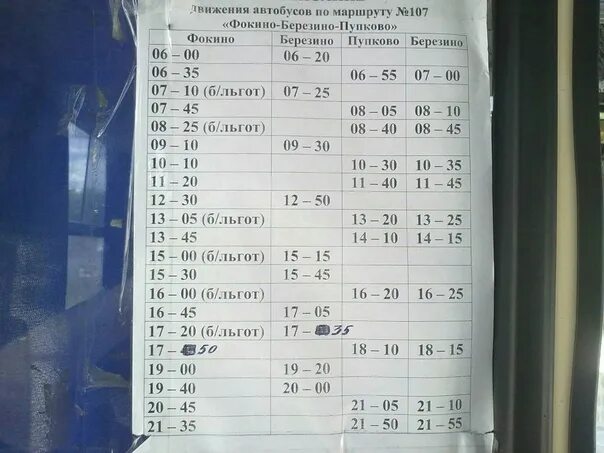 движения автобусов по маршруту №107
«Фокино-Березино-Пунково»
Фокино Березино Пунково Березино
06 – 00 06 – 20
06 – 35 06 – 55 07 – 00
07 – 10 (б/льгот) 07 – 25
07 – 45 08 – 05 08 – 10
08 – 25 (б/льгот) 08 – 40 08 – 45
09 – 10 09 – 30
10 – 10 10 – 30 10 – 35
11 – 20 11 – 40 11 – 45
12 – 30 12 – 50
13 – 05 (б/льгот) 13 – 20 13 – 25
13 – 45 14 – 10 14 – 15
15 – 00 (б/льгот) 15 – 15
15 – 30 15 – 45
16 – 00 (б/льгот) 16 – 20 16 – 25
16 – 45 17 – 05
17 – 20 (б/льгот) 17 – 35
17 – 50 18 – 10 18 – 15
19 – 00 19 – 20
19 – 40 20 – 00
20 – 45 21 – 05 21 – 10
21 – 35 21 – 50 21 – 55